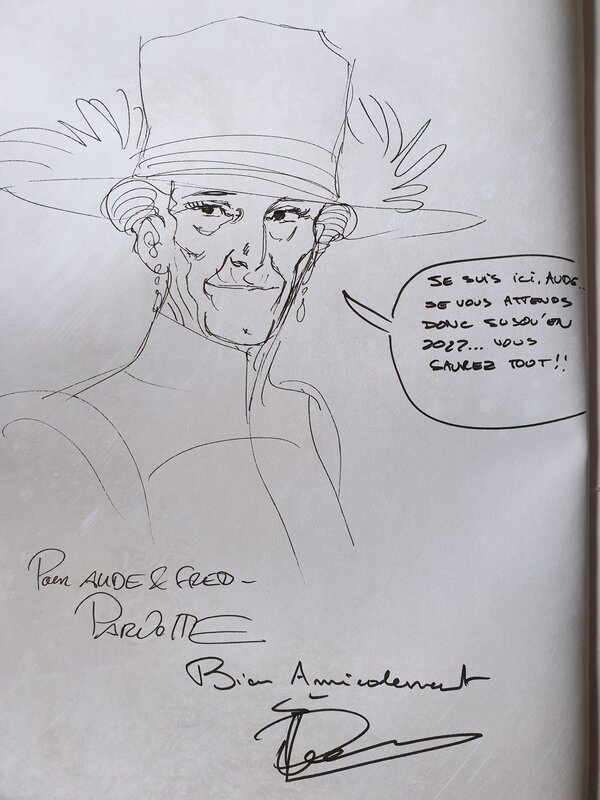 JE SUIS ICI, AUDE..
JE VOUS ATTENDS
DONC JUSQU'EN
2022... VOUS
SAUREZ TOUT!!
Pour AUDE & FRED -
Bien Amicalement